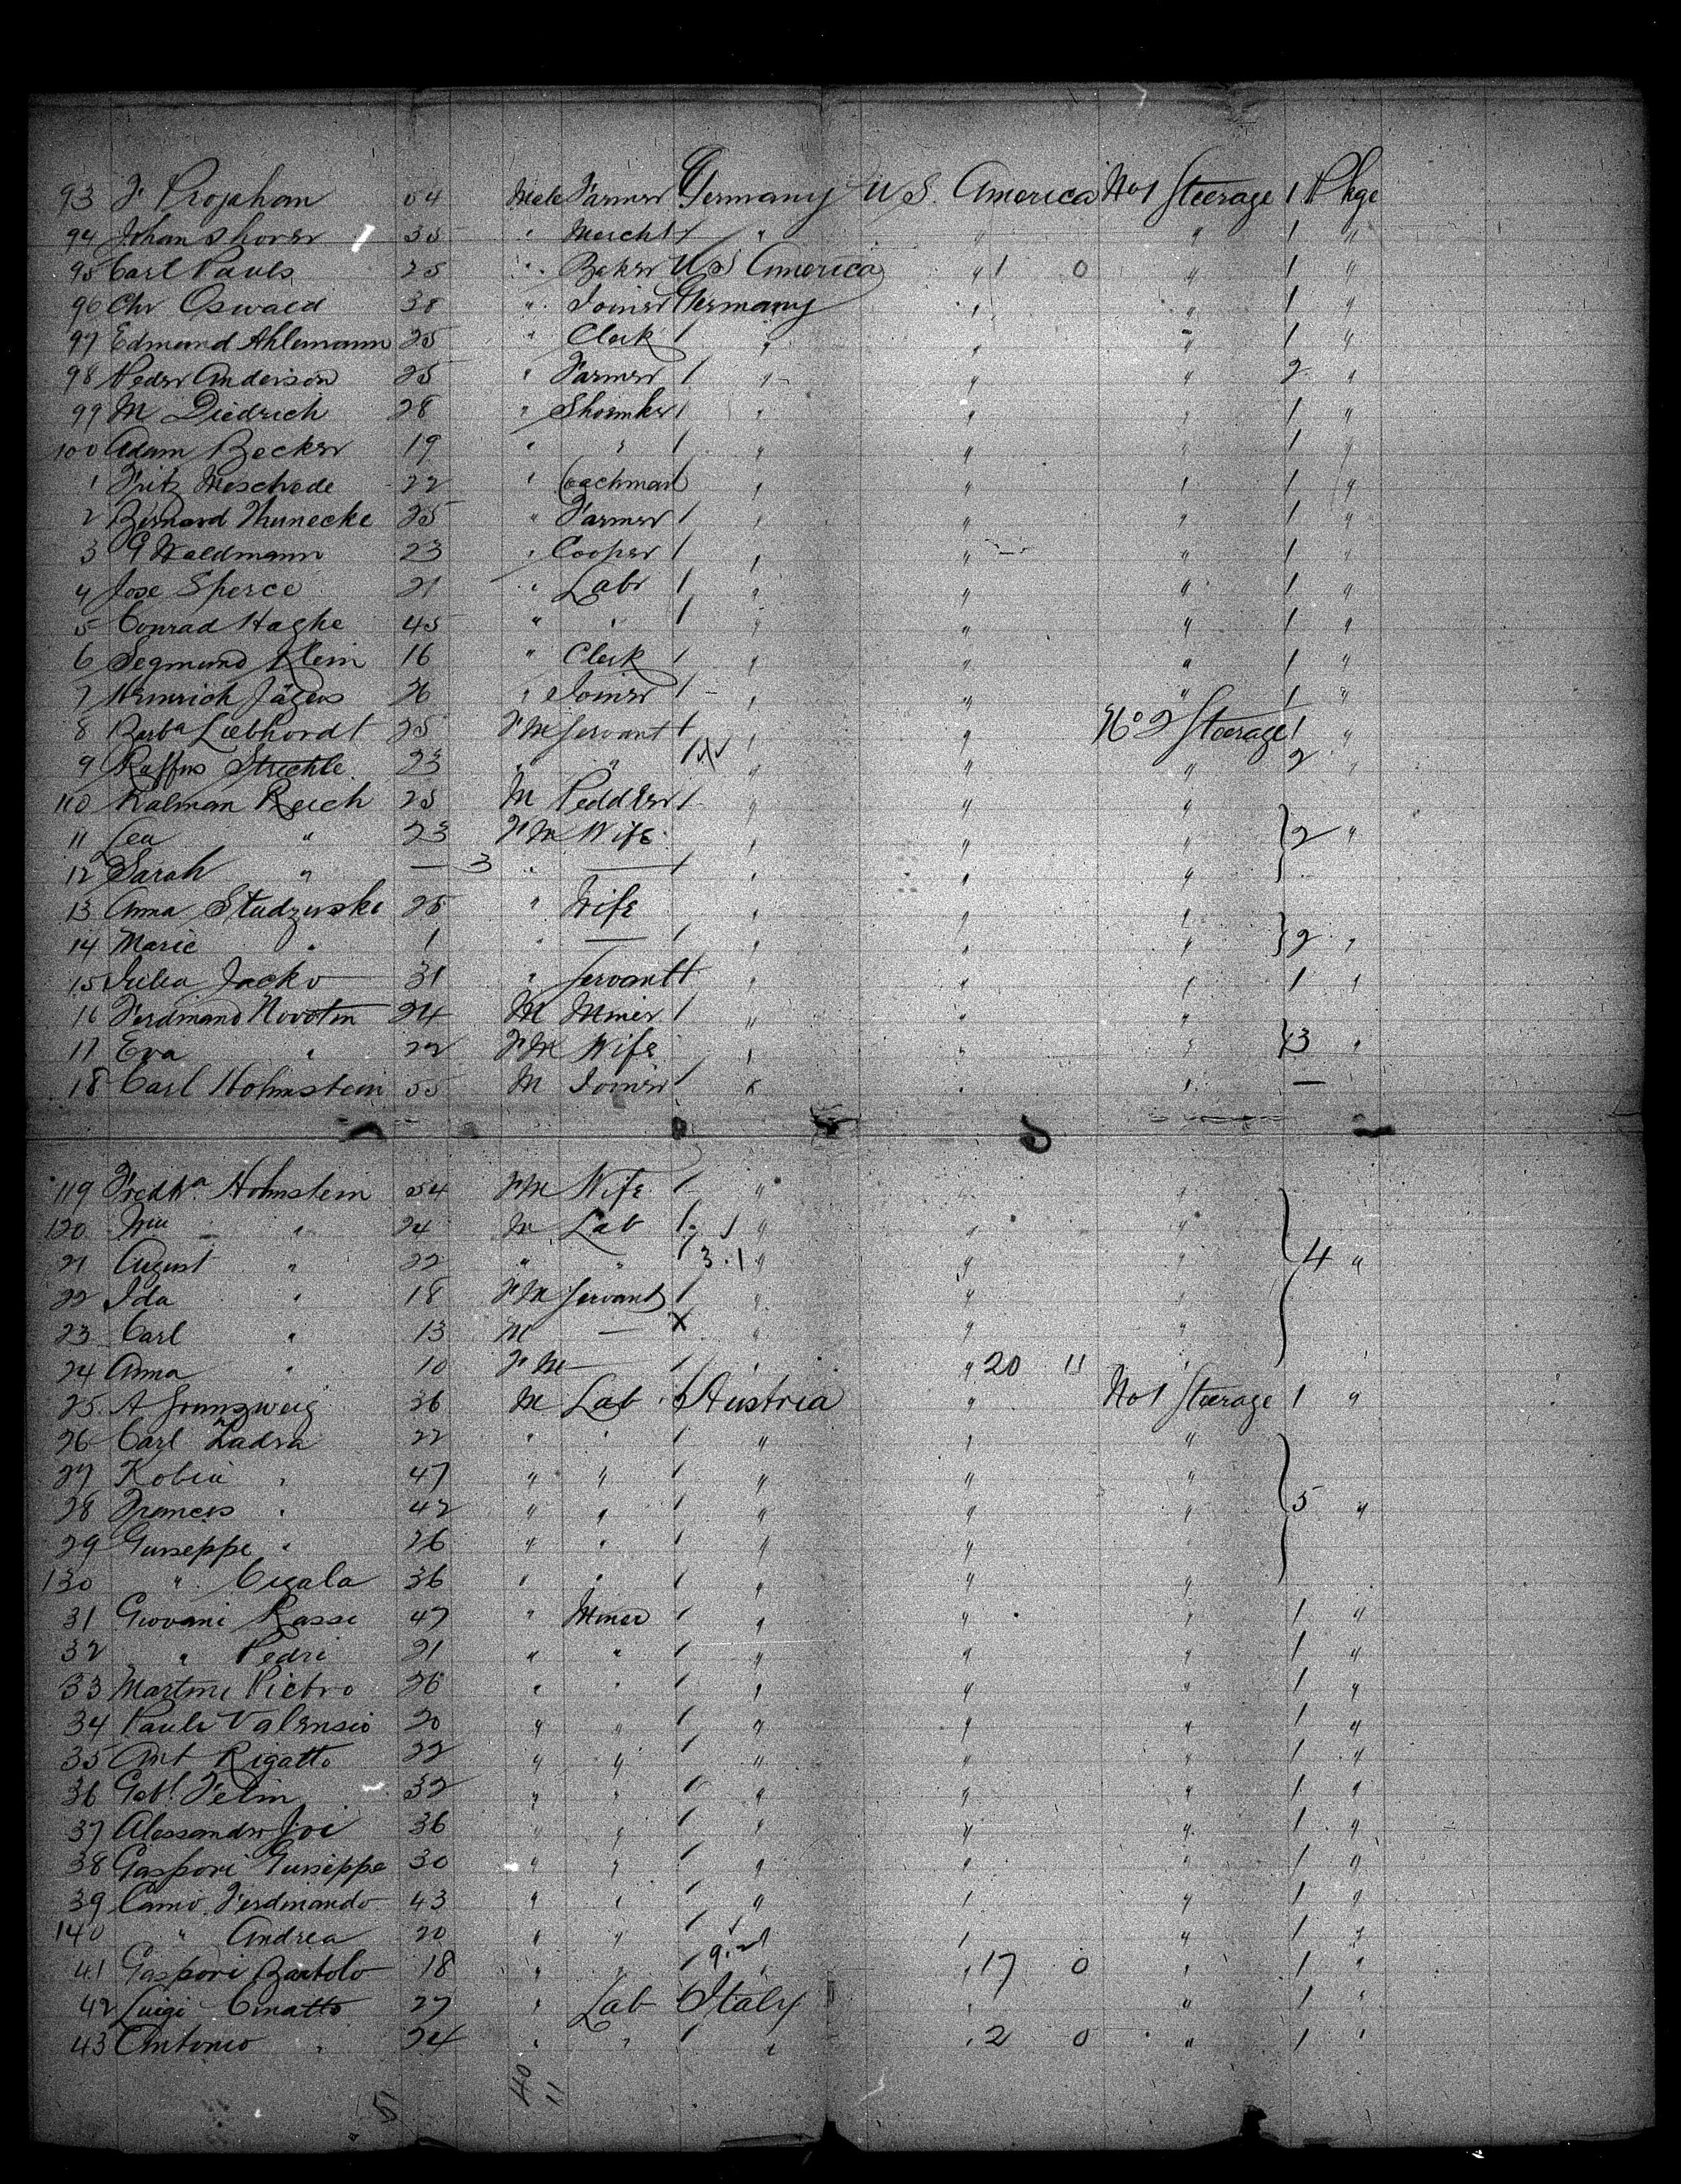 93 F Prophan 54 Male Farmer Germany U S. America No 1 Steerage 1 Pkge
94 Johan Shorer 35 " Mercht / " " " 1 "
95 Carl Pauls 25 " Baker U S America " 1 0 " 1 "
96 Chr Oswald 38 " Joiner Germany " " 1 "
97 Edmund Ahlemann 25 " Clerk / " " " 1 "
98 Peder Anderson 25 " Farmer / " " " 2 "
99 M Diedrich 28 " Shoemker / " " " 1 "
100 Adam Becker 19 " " / " " " 1 "
1 Fritz Meschede 22 " Coachman " " " 1 "
2 Bernard Thunecke 25 " Farmer / " " " 1 "
3 G Waldmann 23 " Cooper / " " " 1 "
4 Jose Sperce 21 " Labr / " " " 1 "
5 Conrad Haghe 45 " " / " " " 1 "
6 Segmund Klein 16 " Clerk / " " " 1 "
7 Heinrich Jägers 26 " Joiner / " " " 1 "
8 Barba Liebhordt 25 F M Servant / " " No 2 Steerage 1 "
9 Ruffus Striehle 23 " " / " " " 2 "
110 Kalman Reich 25 M Peddler / " " "
11 Lea " 23 F M Wife " " " 2 "
12 Sarah " — 3 " — / " " "
13 Anna Studzinske 28 " Wife " " "
14 Marie " 1 " — / " " " 2 "
15 Julia Jacko 31 " Servant / " " " 1 "
16 Ferdinand Novotin 24 M Miner / " " "
17 Eva " 22 F M Wife " " " 3 "
18 Carl Hohnstein 55 M Joiner / " " " —
119 Fredka Hohnstein 54 F M Wife / " " "
120 Wm " 24 M Lab / " " "
21 August " 22 " " / 3.1 " " " 4 "
22 Ida " 18 F M Servant / " " "
23 Carl " 13 M — X " " "
24 Anna " 10 F M — / " " 20 11 "
25 A Grunzweig 36 M Lab / Austria " No 1 Steerage 1 "
26 Carl Zadra 22 " " / " " "
27 Kobia " 47 " " / " " "
28 Francis " 42 " " / " " " 5 "
29 Guiseppe " 26 " " / " " "
130 " Cigala 36 " " / " " "
31 Giovani Rassi 47 " Miner / " " " 1 "
32 " Pedri 21 " " / " " " 1 "
33 Martini Pietro 26 " " / " " " 1 "
34 Pauli Valensio 20 " " / " " " 1 "
35 Ant Rigatto 22 " " / " " " 1 "
36 Gabl. Felin 32 " " / " " " 1 "
37 Alessandro Joi 36 " " / " " " 1 "
38 Gaspori Guiseppe 30 " " / " " " 1 "
39 Camo Ferdinando 43 " " / " " " 1 "
140 " Andrea 20 " " / " " " 1 "
41 Gaspori Bartolo 18 " " / " " 17 0 " 1 "
42 Luigi Cinatto 27 " Lab / Italy " " 1 "
43 Antonio " 24 " " / " " 2 0 " 1 "
5 40 11